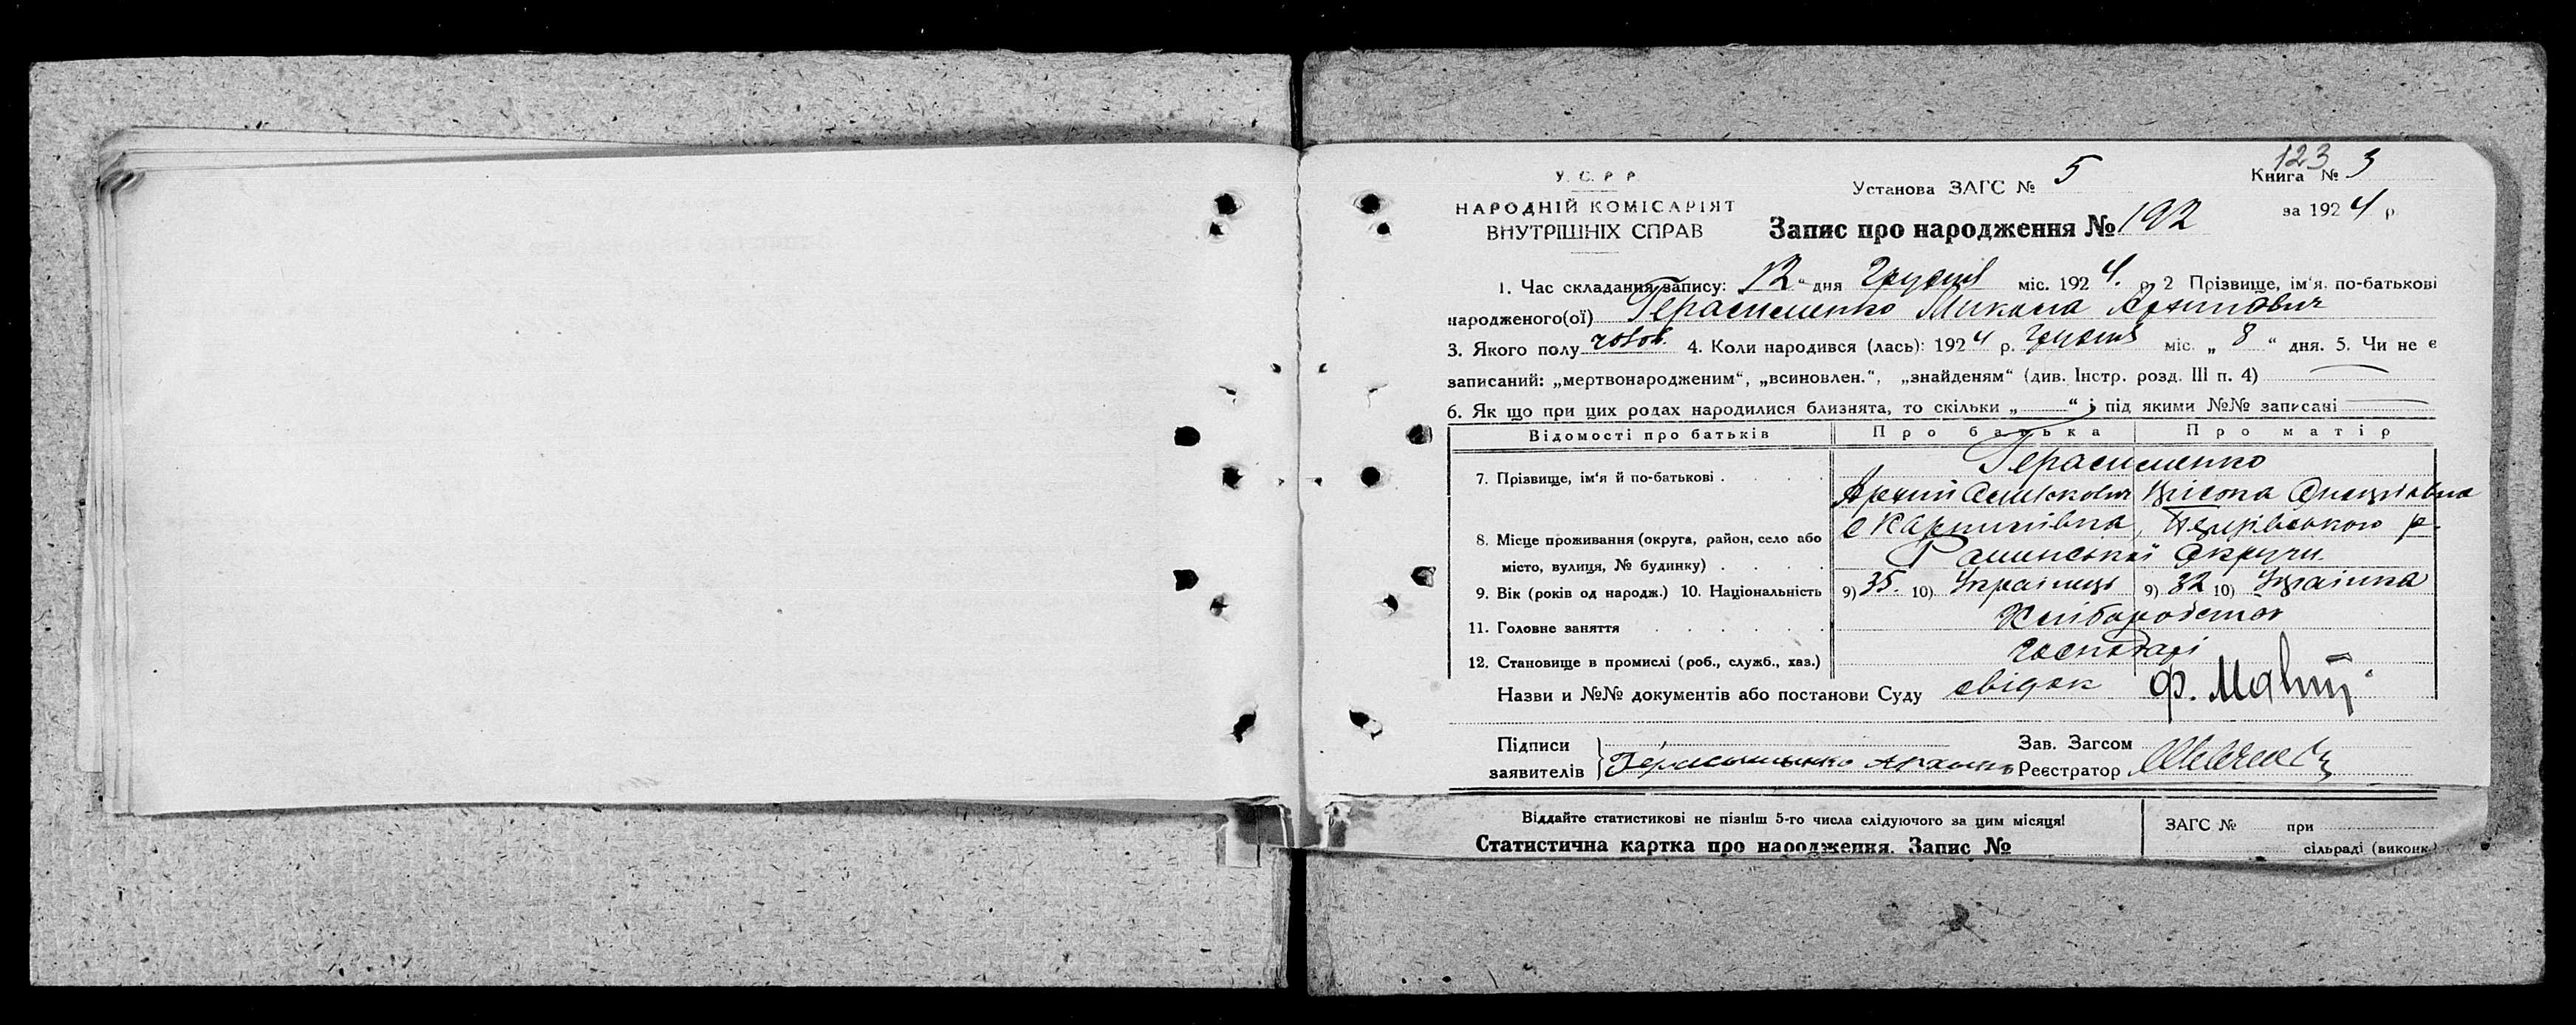 У. С. Р Р
НАРОДНІЙ КОМІСАРІЯТ
ВНУТРІШНІХ СПРАВ
Установа ЗАГС № 5
123
Книга № 3
за 1924 р.
Запис про народження № 192
1. Час складання запису: 12 " дня Грудня міс. 1924. р. 2 Прізвище, ім'я, по-батькові
народженого(ої) Герасименко Микола Архипович
3. Якого полу чолов. 4. Коли народився (лась): 1924 р. Грудня міс. „ 8 “ дня. 5. Чи не є
записаний: „мертвонародженим“, „всиновлен.“, „знайденям“ (див. Інстр. розд. III п. 4)
6. Як що при цих родах народилися близнята, то скільки „ “ і під якими №№ записані
Відомості про батьків Про батька Про матір
7. Прізвище, ім'я й по-батькові Герасименко
Архип
8. Місце проживання (округа, район, село або с Карпилівка, р.
місто, вулиця, № будинку) Роменської Округи
9. Вік (років од народж.) 10. Національність 9) 35. 10) Українець 9) 32 10) Українка
11. Головне заняття Хліборобство
12. Становище в промислі (роб., служб., хаз.) господарі
Назви и №№ документів або постанови Суду свідок Ф.
Підписи
заявителів Герасименко Архип
Зав. Загсом
Реєстратор
Віддайте статистикові не пізніш 5-го числа слідуючого за цим місяця!
Статистична картка про народження. Запис №
ЗАГС № при
сільраді (виконк.)